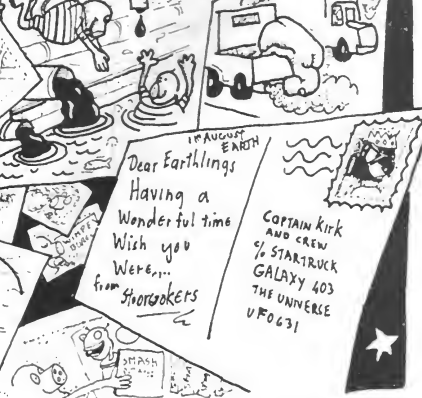 1st AUGUST
EARTH
Dear Earthlings
Having a
Wonderful time
Wish you
Were....
from
MOON
CAPTAIN KIRK
AND CREW
c/o STARTRUCK
GALAXY 403
THE UNIVERSE
UFO631
WIMPEY
SMASH